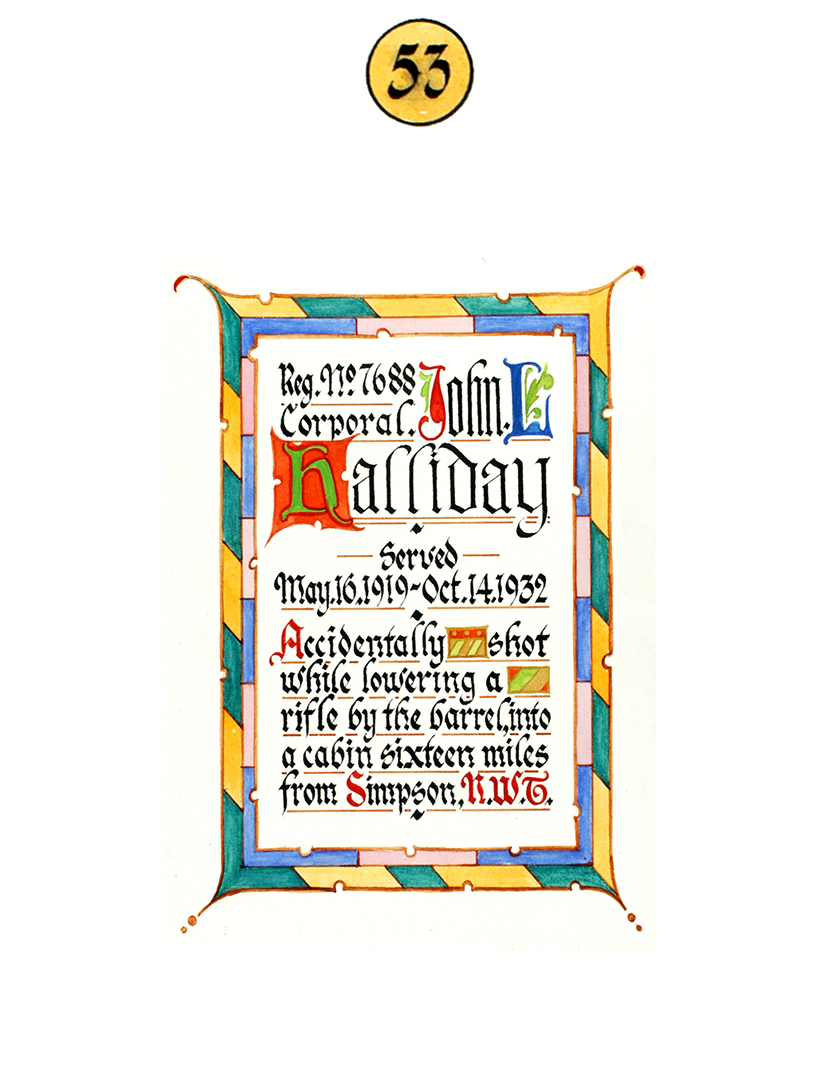 53
Reg. No. 7688 John. L
Corporal.
Halliday
Served
May.16.1919-Oct.14.1932
Accidentally shot
while lowering a
rifle by the barrel,into
a cabin sixteen miles
from Simpson,N.W.T.